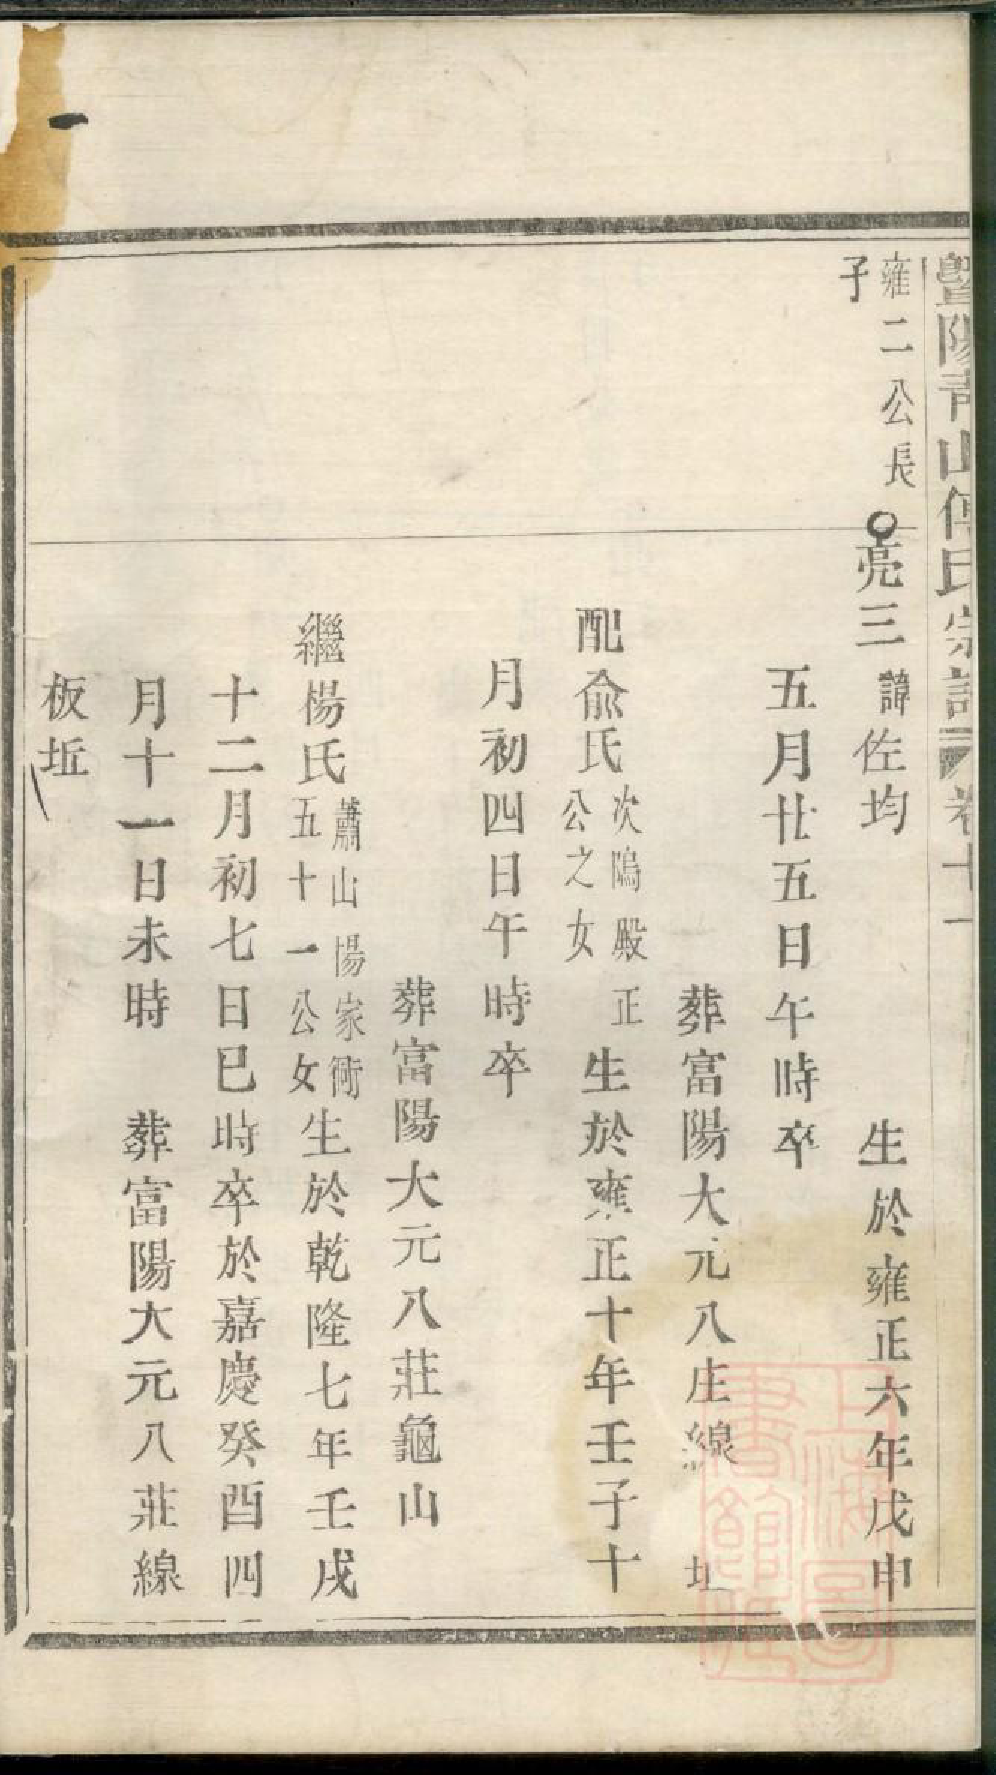 暨陽靑山傅氏宗譜 卷十一
雍二公長
子
亮三 諱佐均 生於雍正六年戊申
五月廿五日午時卒
葬富陽大元八庄線 坵
配兪氏 次隖殿正 公之女 生於雍正十年壬子十
月初四日午時卒
葬富陽大元八莊龜山
繼楊氏 蕭山楊家衖 五十一公女 生於乾隆七年壬戌
十二月初七日巳時卒於嘉慶癸酉四
月十一日未時 葬富陽大元八莊線
板坵
上海圖
書館藏